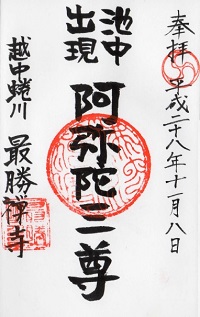 奉拝 平成二十八年十一月八日
池中
出現
阿弥陀三尊
越中蜷川
最勝禅寺